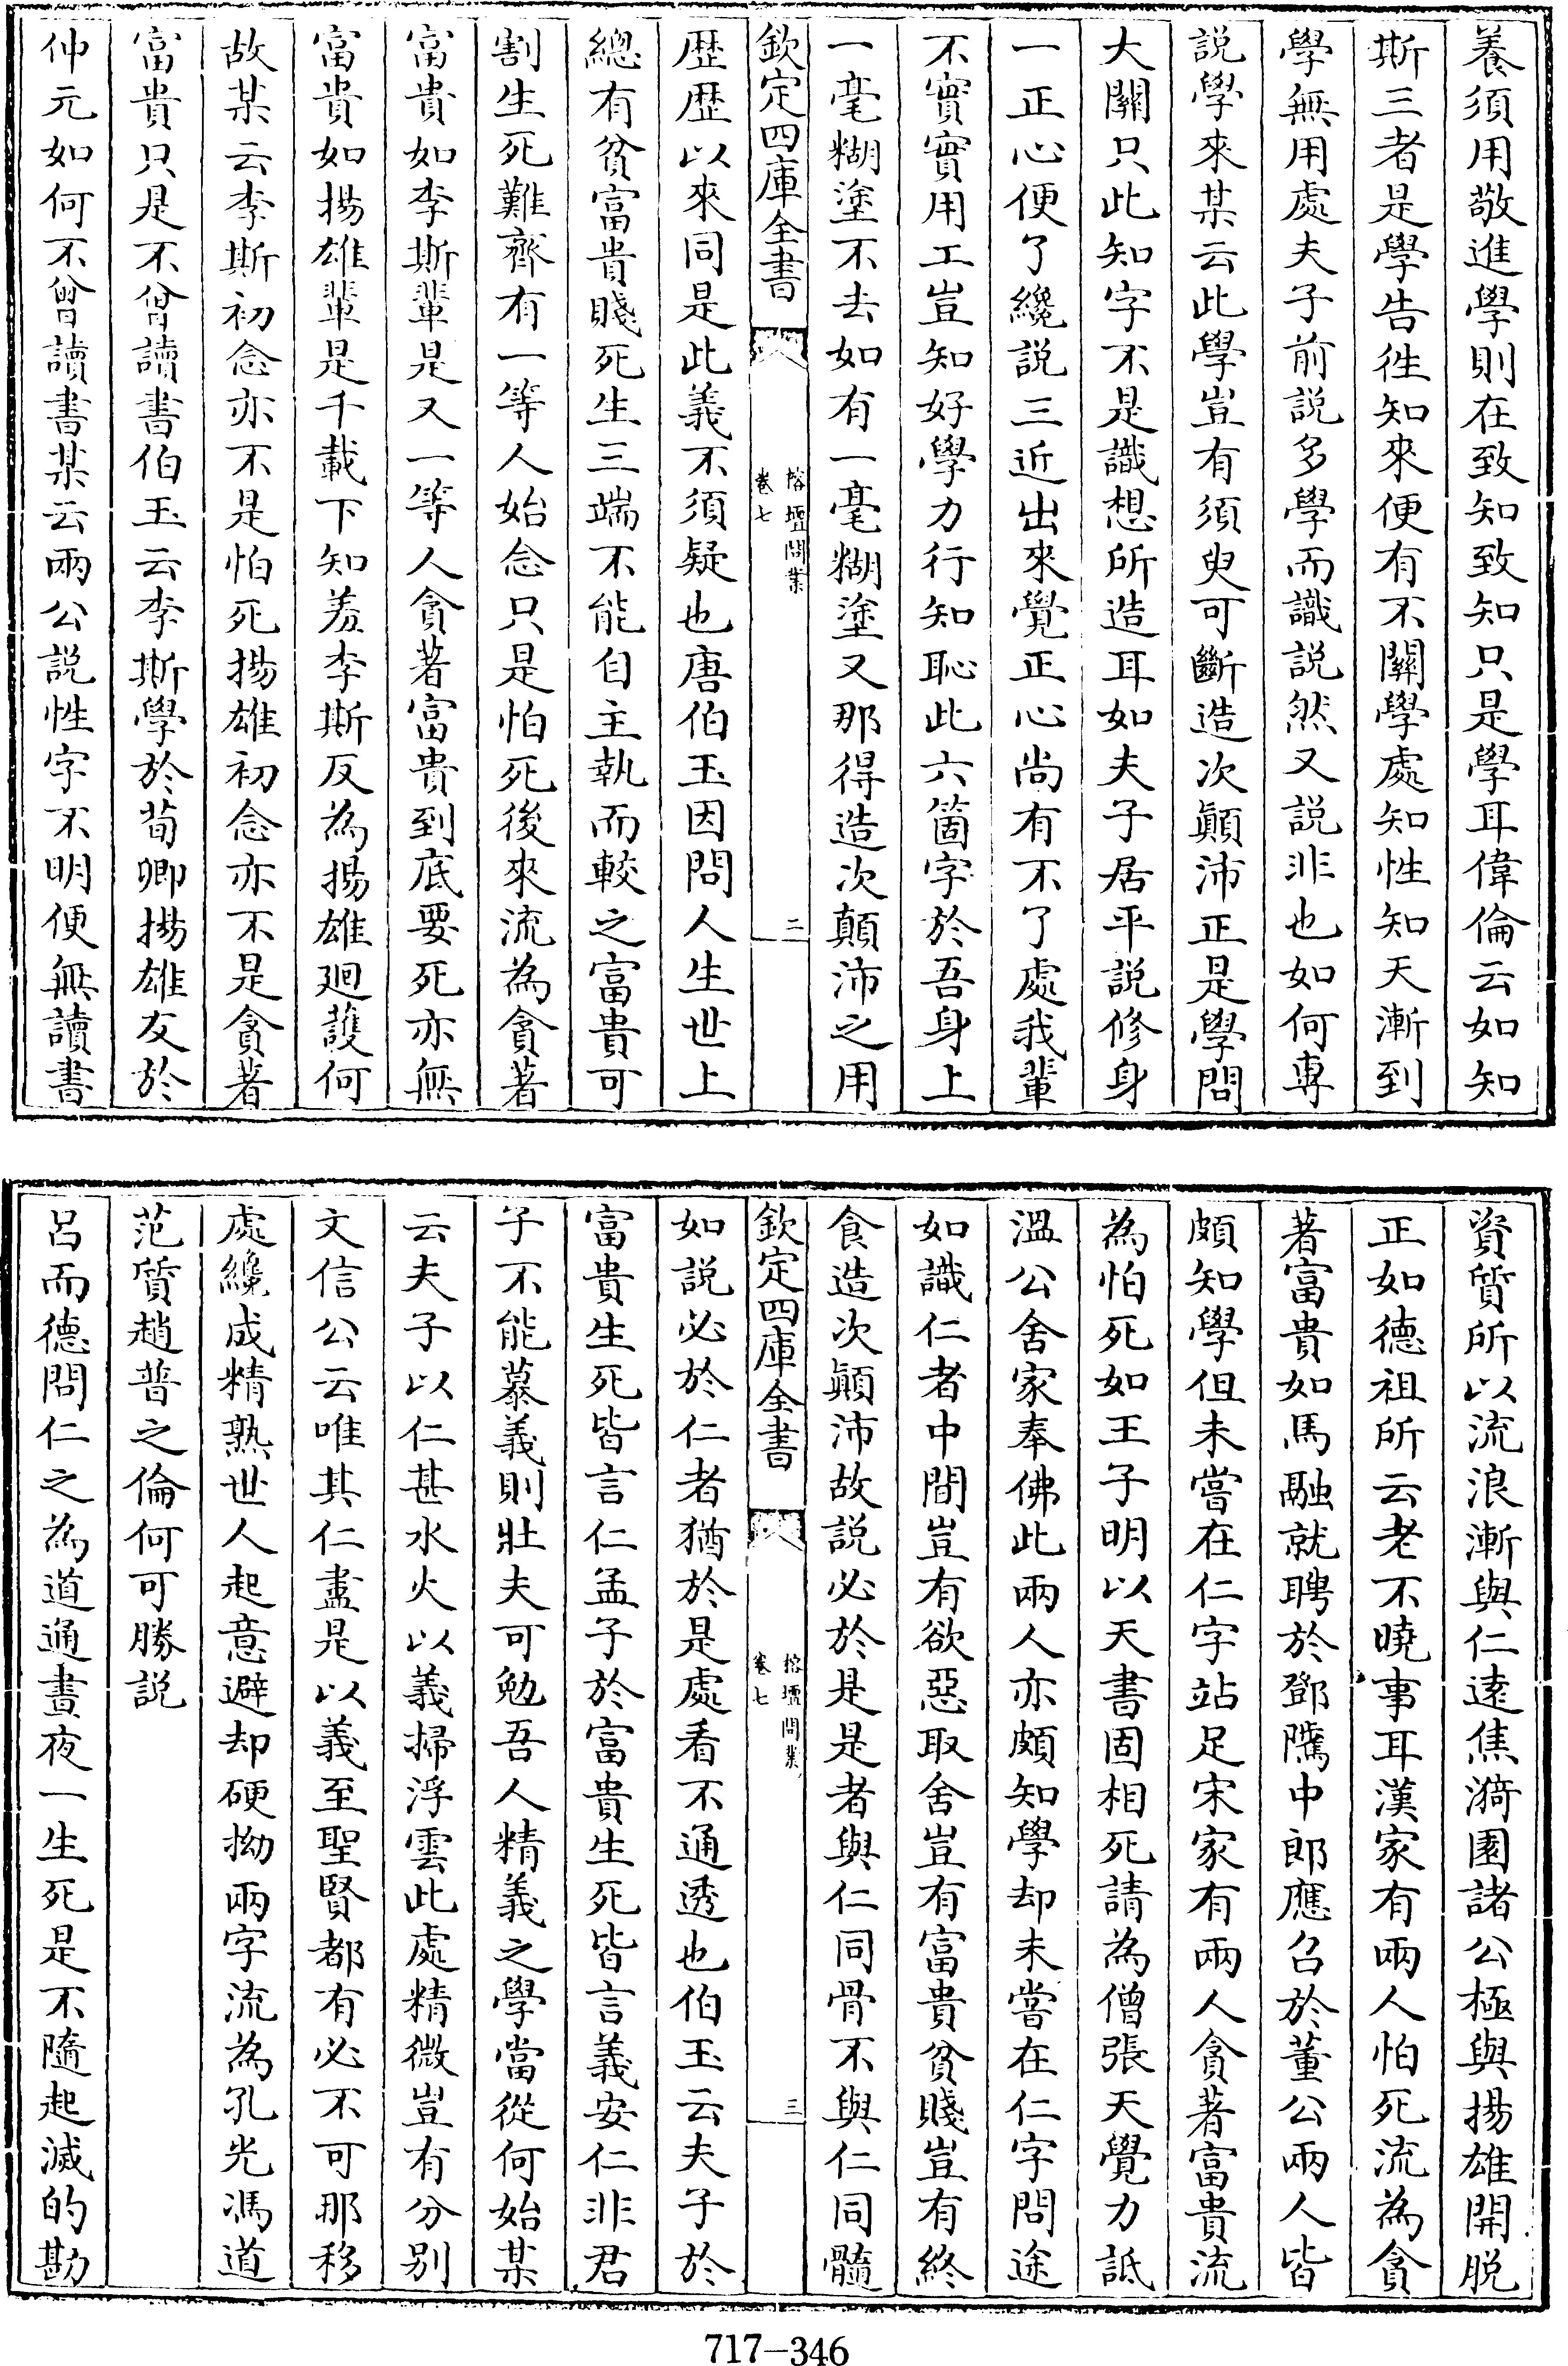 養須用敬進學則在致知致知只是學耳偉倫云如知
斯三者是學告徃知來便有不關學處知性知天漸到
學無用處夫子前説多學而識説然又説非也如何專
説學來某云此學豈有須臾可斷造次顚沛正是學問
大關只此知字不是識想所造耳如夫子居平説修身
一正心便了纔説三近出來覺正心尚有不了處我輩
不實實用工豈知好學力行知恥此六箇字於吾身上
一毫糊塗不去如有一毫糊塗又那得造次顛沛之用
欽定四庫全書
榕壇問業
卷七
二
歴歴以來同是此義不須疑也唐伯玉因問人生世上
總有貧富貴賤死生三端不能自主執而較之富貴可
割生死難齊有一等人始念只是怕死後來流為貪著
富貴如李斯輩是又一等人貪著富貴到底要死亦無
富貴如揚雄輩是千載下知羞李斯反為揚雄廻護何
故某云李斯初念亦不是怕死揚雄初念亦不是貪著
富貴只是不曾讀書伯玉云李斯學於荀卿揚雄友於
仲元如何不曾讀書某云兩公説性字不明便無讀書
資質所以流浪漸與仁逺焦漪園諸公極與揚雄開脱
正如德祖所云老不曉事耳漢家有兩人怕死流為貪
著富貴如馬融就聘於鄧隲中郎應召於董公兩人皆
頗知學但未嘗在仁字站足宋家有兩人貪著富貴流
為怕死如王子明以天書固相死請為僧張天覺力詆
溫公舍家奉佛此兩人亦頗知學却未嘗在仁字問途
如識仁者中間豈有欲惡取舍豈有富貴貧賤豈有終
食造次顚沛故説必於是是者與仁同骨不與仁同髓
欽定四庫全書
榕壇問業
卷七
三
如説必於仁者猶於是處看不通透也伯玉云夫子於
富貴生死皆言仁孟子於富貴生死皆言義安仁非君
子不能慕義則壯夫可勉吾人精義之學當從何始某
云夫子以仁甚水火以義掃浮雲此處精微豈有分别
文信公云唯其仁盡是以義至聖賢都有必不可那移
處纔成精熟世人起意避却硬拗兩字流為孔光馮道
范質趙普之倫何可勝説
呂而德問仁之為道通晝夜一生死是不隨起滅的勘
717-346